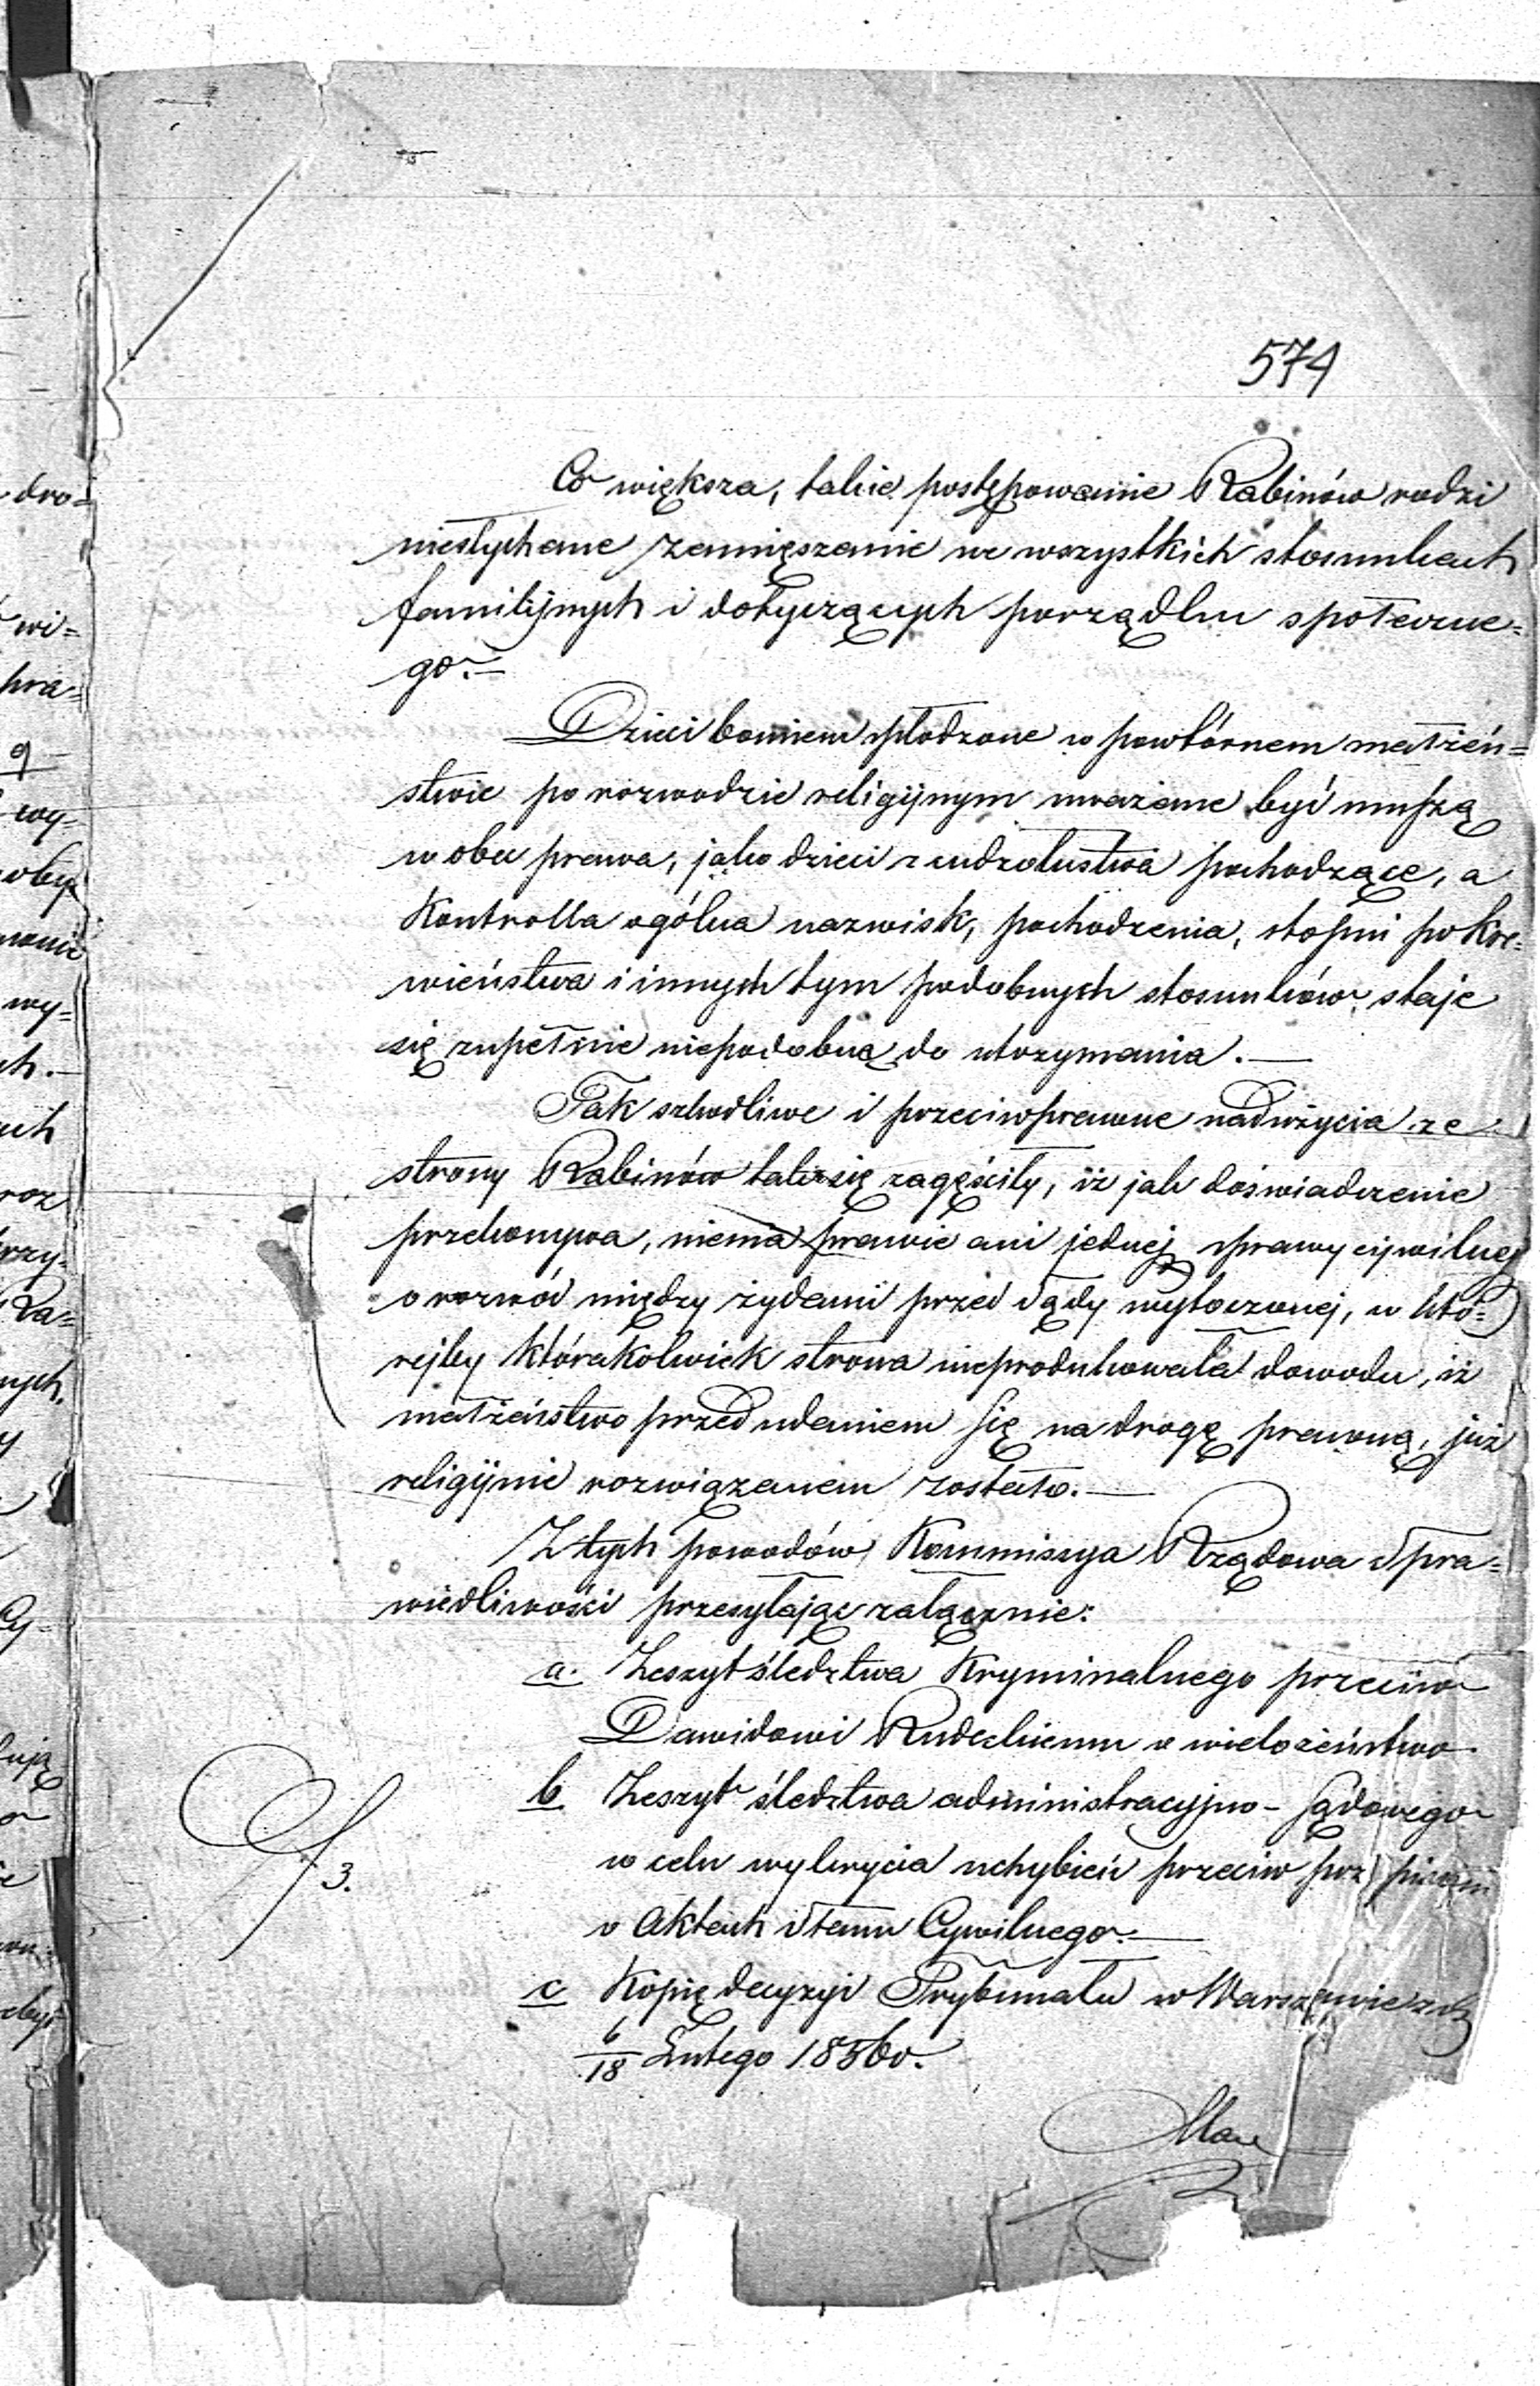 574
Co większa, takie postępowanie Rabinów rodzi
niesłychane zamięszanie we wszystkich stosunkach
familijnych i dotyczących porządku społeczne=
go.—
Dzieci bowiem spłodzone w powtórnem małżeń=
stwie po rozwodzie religijnym uważane być muszą
w obec prawa, jako dzieci z cudzołostwa pochodzące, a
Kontrolla ogólna nazwisk, pochodzenia, stopni pokre=
wieństwa i innych tym podobnych stosunków, staje
się zupełnie niepodobną do utrzymania.—
Tak szkodliwe i przeciwprawne nadużycia ze
strony Rabinów tak się zagęściły, iż jak doświadczenie
przekonywa, niema prawie ani jednej sprawy cywilnej
o rozwód między żydami przed Sądy wytoczonej, w któ=
rejby którakolwiek strona nieprodukowała dowodu, iż
małżeństwo przed udaniem się na drogę prawną, już
religijnie rozwiązanem zostało.—
Z tych powodów Kommissya Rządowa Spra=
wiedliwości przesyłając załącznie:
a. Zeszyt śledztwa Kryminalnego przeciw
Dawidowi Rudeckiemu o wielożeństwo
3.
b Zeszyt śledztwa administracyjno-Sądowego
w celu wykrycia uchybień przeciw przepisom
o Aktach Stanu Cywilnego.—
c Kopię decyzyi Trybunału w Warszawie z d.
6/18 Lutego 1856 r.